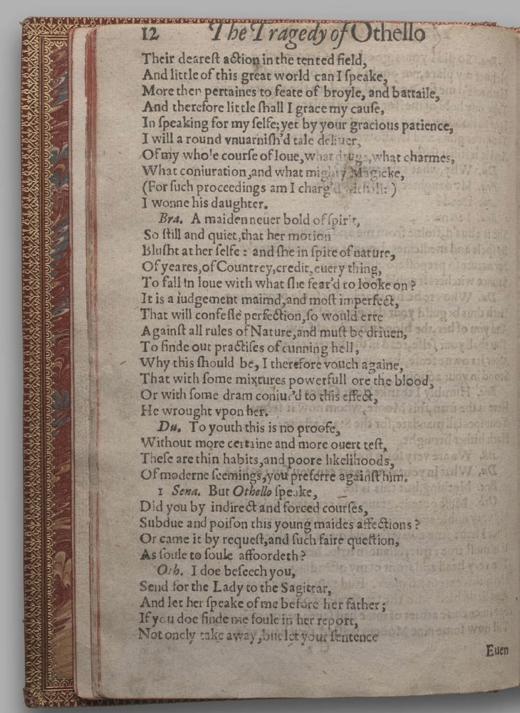 12 The Tragedy of Othello
Their dearest action in the tented field,
And little of this great world can I speake,
More then pertaines to feate of broyle, and battaile,
And therefore little shall I grace my cause,
In speaking for my selfe; yet by your gracious patience,
I will a round vnuarnish'd tale deliuer,
Of my whole course of loue, what drugs, what charmes,
What coniuration, and what mighty Magicke,
(For such proceedings am I charg'd withall: )
I wonne his daughter.
Bra. A maiden neuer bold of spirit,
So still and quiet, that her motion
Blusht at her selfe : and she in spite of nature,
Of yeares, of Countrey, credit, euery thing,
To fall in loue with what she fear'd to looke on ?
It is a iudgement maimd, and most imperfect,
That will confesse perfection, so would erre
Against all rules of Nature, and must be driuen,
To finde out practises of cunning hell,
Why this should be, I therefore vouch againe,
That with some mixtures powerfull ore the blood,
Or with some dram coniur'd to this effect,
He wrought vpon her.
Du. To youth this is no proofe,
Without more certaine and more ouert test,
These are thin habits, and poore likelihoods,
Of moderne seemings, you preferre against him.
1 Sena. But Othello speake,
Did you by indirect and forced courses,
Subdue and poison this young maides affections ?
Or came it by request, and such faire question,
As soule to soule affoordeth ?
Oth. I doe beseech you,
Send for the Lady to the Sagittar,
And let her speake of me before her father ;
If you doe finde me foule in her report,
Not onely take away, but let your sentence
Euen